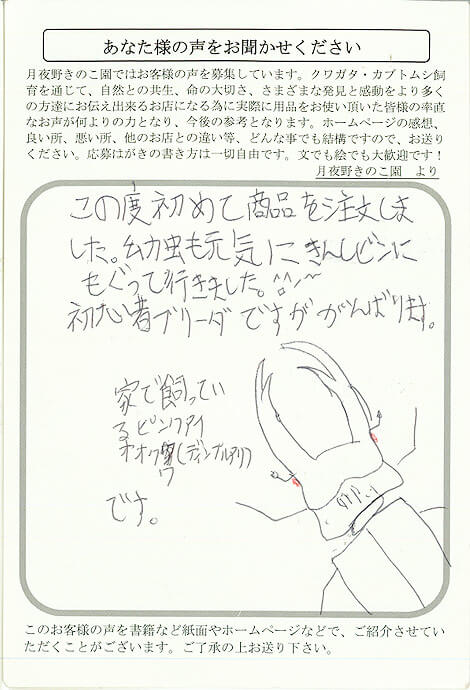 あなた様の声をお聞かせください
月夜野きのこ園ではお客様の声を募集しています。クワガタ・カブトムシ飼
育を通じて、自然との共生、命の大切さ、さまざまな発見と感動をより多く
の方達にお伝え出来るお店になる為に実際に用品をお使い頂いた皆様の率直
なお声が何よりの力となり、今後の参考となります。ホームページの感想、
良い所、悪い所、他のお店との違い等、どんな事でも結構ですので、お送り
ください。応募はがきの書き方は一切自由です。文でも絵でも大歓迎です！
月夜野きのこ園　より
この度初めて商品を注文しま
した。幼虫も元気にきんしビンに
もぐって行きました。^^
初心者ブリーダですががんばります。
家で飼ってい
るピンクアイ
オオクワ(ディンタルアリ)
です。
このお客様の声を書籍など紙面やホームページなどで、ご紹介させてい
ただくことがございます。ご了承の上お送り下さい。